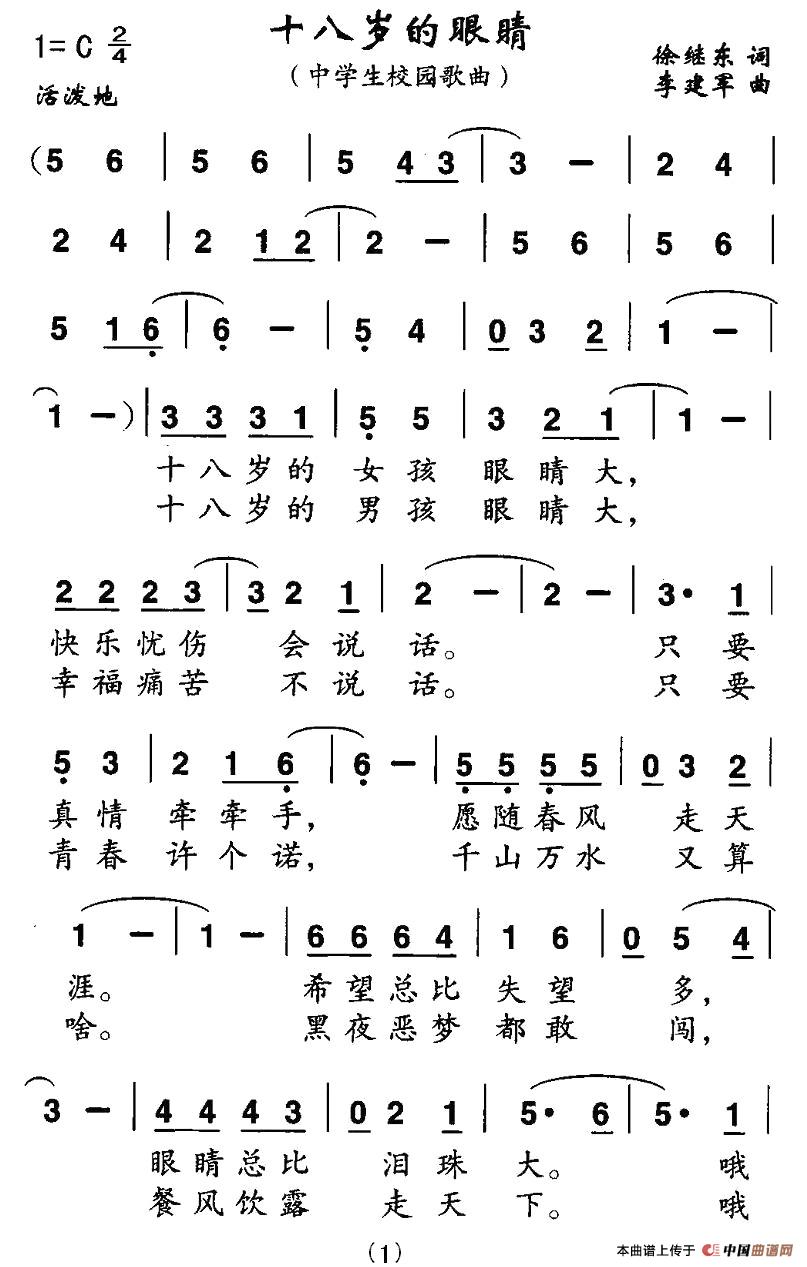 十八岁的眼睛
1=C 2/4
（中学生校园歌曲）
徐继东 词
活泼地
李建军 曲
(5 6 | 5 6 | 5 4 3 | 3 － | 2 4 |
2 4 | 2 1 2 | 2 － | 5 6 | 5 6 |
5 1 6 | 6 － | 5 4 | 0 3 2 | 1 － |
1 －) | 3 3 3 1 | 5 5 | 3 2 1 | 1 － |
十八岁的 女孩 眼睛大，
十八岁的 男孩 眼睛大，
2 2 2 3 | 3 2 1 | 2 － | 2 － | 3· 1 |
快乐忧伤 会说话。 只要
幸福痛苦 不说话。 只要
5 3 | 2 1 6 | 6 － | 5 5 5 5 | 0 3 2 |
真情 牵牵手， 愿随春风 走天
青春 许个诺， 千山万水 又算
1 － | 1 － | 6 6 6 4 | 1 6 | 0 5 4 |
涯。 希望总比 失望 多，
啥。 黑夜恶梦 都敢 闯，
3 － | 4 4 4 3 | 0 2 1 | 5· 6 | 5· 1 |
眼睛总比 泪珠大。 哦
餐风饮露 走天下。 哦
(1)
本曲谱上传于 中国曲谱网